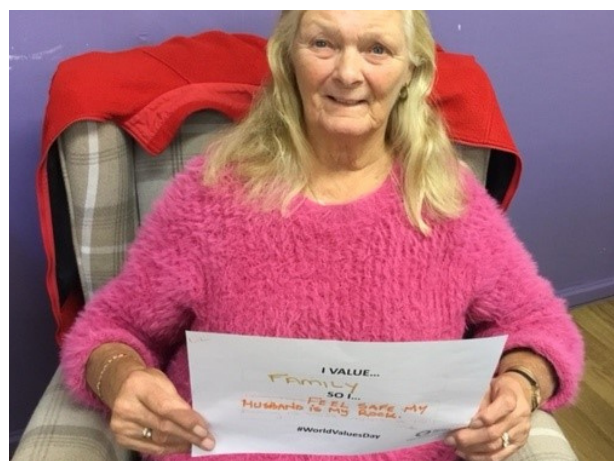 I VALUE...
FAMILY
SO I...
FEEL SAFE MY
HUSBAND IS MY ROCK.
#WorldValuesDay